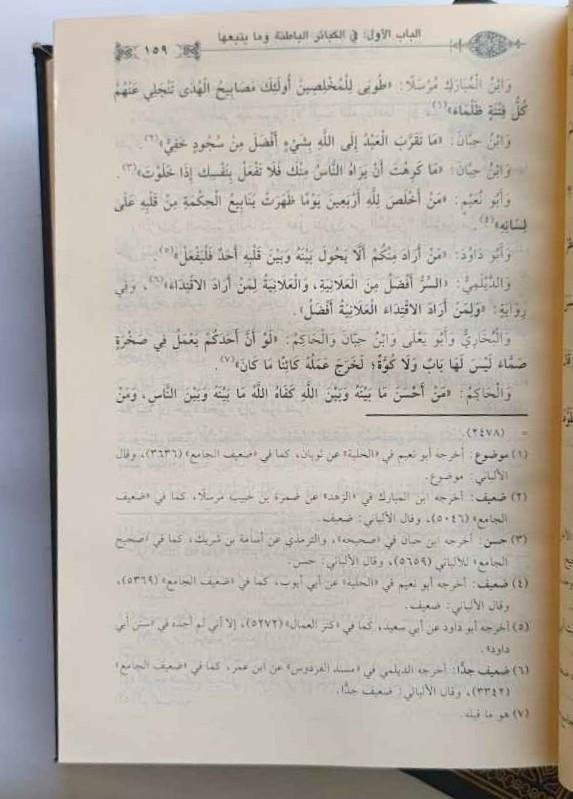 الباب الأول: في الكبائر الباطنة وما يتبعها
١٥٩
وَابْنُ الْمُبَارَكِ مُرْسَلًا: «طُوبَى لِلْمُخْلِصِينَ أُولَئِكَ مَصَابِيحُ الْهُدَى تَنْجَلِي عَنْهُمْ
كُلُّ فِتْنَةٍ ظَلْمَاءَ»(١).
وَابْنُ حِبَّانَ: «مَا تَقَرَّبَ الْعَبْدُ إِلَى اللَّهِ بِشَيْءٍ أَفْضَلَ مِنْ سُجُودٍ خَفِيٍّ»(٢).
وَابْنُ حِبَّانَ: «مَا كَرِهْتَ أَنْ يَرَاهُ النَّاسُ مِنْكَ فَلَا تَفْعَلْ بِنَفْسِكَ إِذَا خَلَوْتَ»(٣).
وَأَبُو نُعَيْمٍ: «مَنْ أَخْلَصَ لِلَّهِ أَرْبَعِينَ يَوْمًا ظَهَرَتْ يَنَابِيعُ الْحِكْمَةِ مِنْ قَلْبِهِ عَلَى
لِسَانِهِ»(٤).
وَأَبُو دَاوُدَ: «مَنْ أَرَادَ مِنْكُمْ أَلَّا يَحُولَ بَيْنَهُ وَبَيْنَ قَلْبِهِ أَحَدٌ فَلْيَفْعَلْ»(٥).
وَالدَّيْلَمِيُّ: «السِّرُّ أَفْضَلُ مِنَ الْعَلَانِيَةِ، وَالْعَلَانِيَةُ لِمَنْ أَرَادَ الِاقْتِدَاءَ»(٦)، وَفِي
رِوَايَةٍ: «وَلِمَنْ أَرَادَ الِاقْتِدَاءَ الْعَلَانِيَةُ أَفْضَلُ».
وَالْبُخَارِيُّ وَأَبُو يَعْلَى وَابْنُ حِبَّانَ وَالْحَاكِمُ: «لَوْ أَنَّ أَحَدَكُمْ يَعْمَلُ فِي صَخْرَةٍ
صَمَّاءَ لَيْسَ لَهَا بَابٌ وَلَا كُوَّةٌ؛ لَخَرَجَ عَمَلُهُ كَائِنًا مَا كَانَ»(٧).
وَالْحَاكِمُ: «مَنْ أَحْسَنَ مَا بَيْنَهُ وَبَيْنَ اللَّهِ كَفَاهُ اللَّهُ مَا بَيْنَهُ وَبَيْنَ النَّاسِ، وَمَنْ
= (٢٤٧٨).
(١) موضوع: أخرجه أبو نعيم في «الحلية» عن ثوبان، كما في «ضعيف الجامع» (٣٦٣٦)، وقال
الألباني: موضوع.
(٢) ضعيف: أخرجه ابن المبارك في «الزهد» عن ضمرة بن حبيب مرسلًا، كما في «ضعيف
الجامع» (٥٠٤٦)، وقال الألباني: ضعيف.
(٣) حسن: أخرجه ابن حبان في «صحيحه»، والترمذي عن أسامة بن شريك، كما في «صحيح
الجامع» للألباني (٥٦٥٩)، وقال الألباني: حسن.
(٤) ضعيف: أخرجه أبو نعيم في «الحلية» عن أبي أيوب، كما في «ضعيف الجامع» (٥٣٦٩)،
وقال الألباني: ضعيف.
(٥) أخرجه أبو داود عن أبي سعيد، كما في «كنز العمال» (٥٢٧٢)، إلا أني لم أجده في «سنن أبي
داود».
(٦) ضعيف جدًّا: أخرجه الديلمي في «مسند الفردوس» عن ابن عمر، كما في «ضعيف الجامع»
(٣٣٤٢)، وقال الألباني: ضعيف جدًّا.
(٧) هو ما قبله.